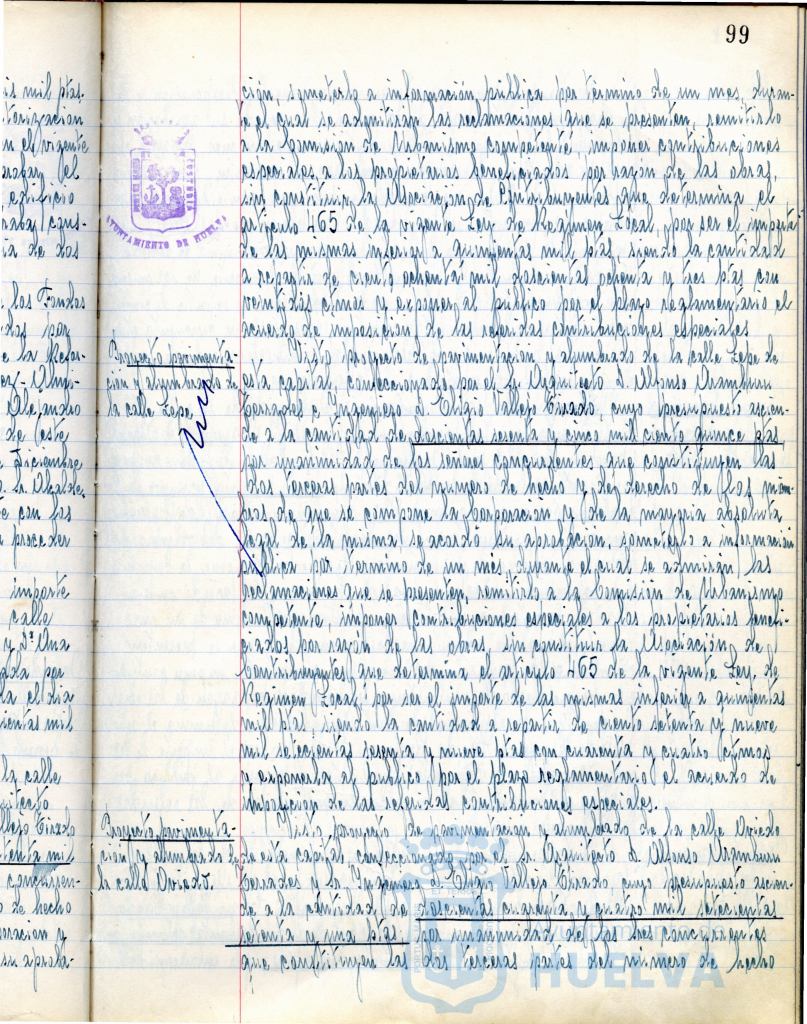 99
is mil ptas.
torización
n el vigente
robar el
edificio
raba cons-
ia de dos
los Fondos
dos por
e la Refor-
Alejandro
de este
Diciembre
Sr. Alcalde.
e con los
a proceder
importe
calle
y Dª Ana
ada por
la el dia
cientas mil
la calle
uitecto
llejo Tirado
tenta mil
concurren-
o de hecho
oración y
su aproba-
AYUNTAMIENTO DE HUELVA
ción, someterlo a información pública por término de un mes, duran-
te el cual se admitiran las reclamaciones que se presenten, remitirlo
a la Comision de Urbanismo competente imponer contribuciones
especiales a los propietarios beneficiados por razon de las obras,
sin constituir la Asociacion de Contribuyentes que determina el
artículo 465 de la vigente Ley de Regimen Local, por ser el importe
de las mismas inferior a quinientas mil ptas, siendo la cantidad
a repartir de ciento ochenta mil doscientas ochenta y tres ptas con
veintidos ctmos y exponer al público por el plazo reglamentario el
acuerdo de imposición de las referidas contribuciones especiales
Proyecto pavimenta-
ción y alumbrado de
la calle Lepe
Visto proyecto de pavimentación y alumbrado de la calle Lepe de
esta capital, confeccionado por el Sr. Arquitecto D. Alfonso Aramburu
Terrades e Ingeniero D. Eligio Vallejo Tirado, cuyo presupuesto ascien-
de a la cantidad de doscientas sesenta y cinco mil ciento quince ptas,
por unanimidad de los señores concurrentes que constituyen las
dos terceras partes del número de hecho y de derecho de los miem-
bros de que se compone la Corporación y de la mayoria absoluta
legal de la misma se acordó su aprobación, someterlo a información
pública por termino de un mes, durante el cual se admiran las
reclamaciones que se presenten, remitirlo a la Comisión de Urbanismo
competente, imponer contribuciones especiales a los propietarios benefi-
ciados por razón de las obras, sin constituir la Asociación de
Contribuyentes que determina el articulo 465 de la vigente Ley de
Regimen Local, por ser el importe de las mismas inferior a quinientas
mil ptas, siendo la cantidad a repartir de ciento setenta y nueve
mil setecientas sesenta y nueve ptas con cuarenta y cuatro ctmos
y exponerla al publico por el plazo reglamentario el acuerdo de
imposición de las referidas contribuciones especiales.
Proyecto pavimenta-
ción y alumbrado de
la calle Oviedo.
Visto proyecto de pavimentacion y alumbrado de la calle Oviedo
de esta capital, confeccionado por el Sr. Arquitecto D. Alfonso Aramburu
Terrades y Sr. Ingeniero D. Eligio Vallejo Tirado, cuyo presupuesto ascien-
de a la cantidad de doscientas cuarenta y cuatro mil setecientas
setenta y una ptas por unanimidad de los Sres concurrentes
que constituyen las dos terceras partes del número de hecho
Ayuntamiento de
HUELVA